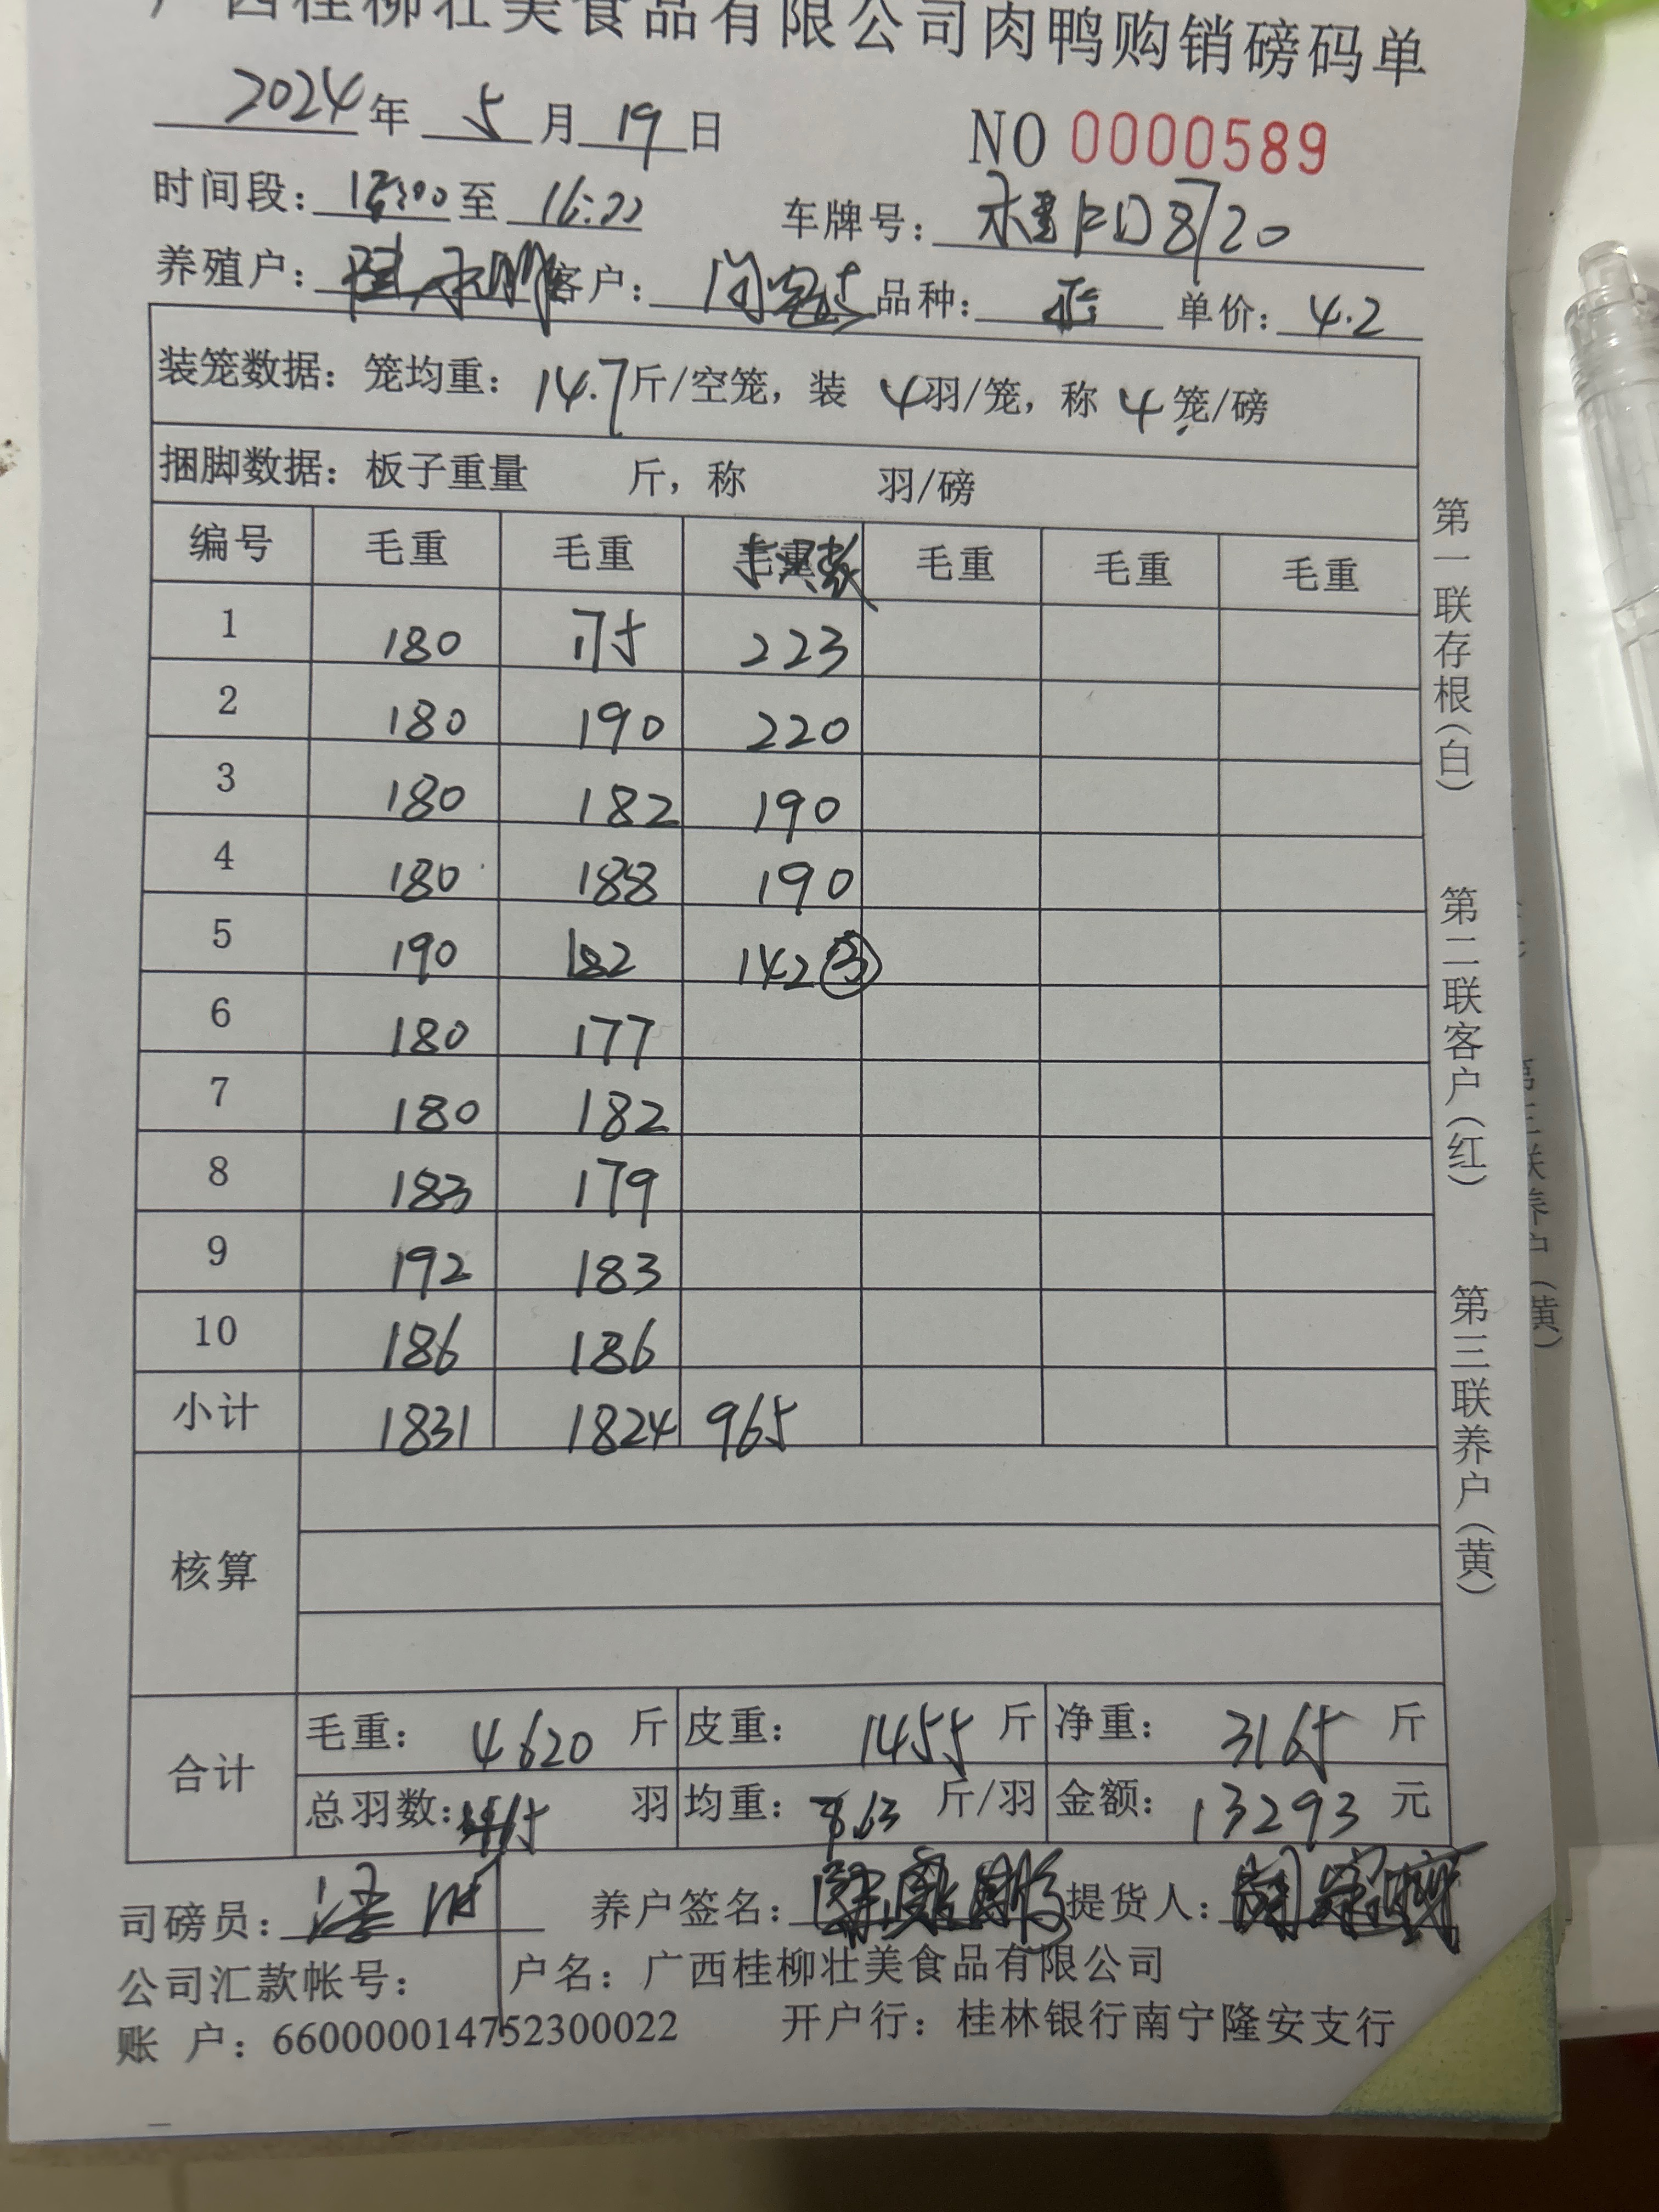 广西桂柳壮美食品有限公司肉鸭购销磅码单
2024年 5月 19日 NO 0000589
时间段: 至 16:22 车牌号: D8720
养殖户: 客户: 品种: 单价: 4.2
装笼数据: 笼均重: 14.7斤/空笼, 装 4羽/笼, 称 4笼/磅
捆脚数据: 板子重量 斤, 称 羽/磅
编号 毛重 毛重 毛重 毛重 毛重 毛重
1 180 175 223
2 180 190 220
3 180 182 190
4 180 188 190
5 190 182 142 ③
6 180 177
7 180 182
8 183 179
9 192 183
10 186 186
小计 1831 1824 965
核算
合计 毛重: 4620 斤 皮重: 1455 斤 净重: 3165 斤
总羽数: 羽 均重: 8.63 斤/羽 金额: 13293 元
司磅员: 养户签名: 提货人:
公司汇款帐号: 户名: 广西桂柳壮美食品有限公司
账 户: 660000014752300022 开户行: 桂林银行南宁隆安支行
第一联存根(白) 第二联客户(红) 第三联养户(黄)